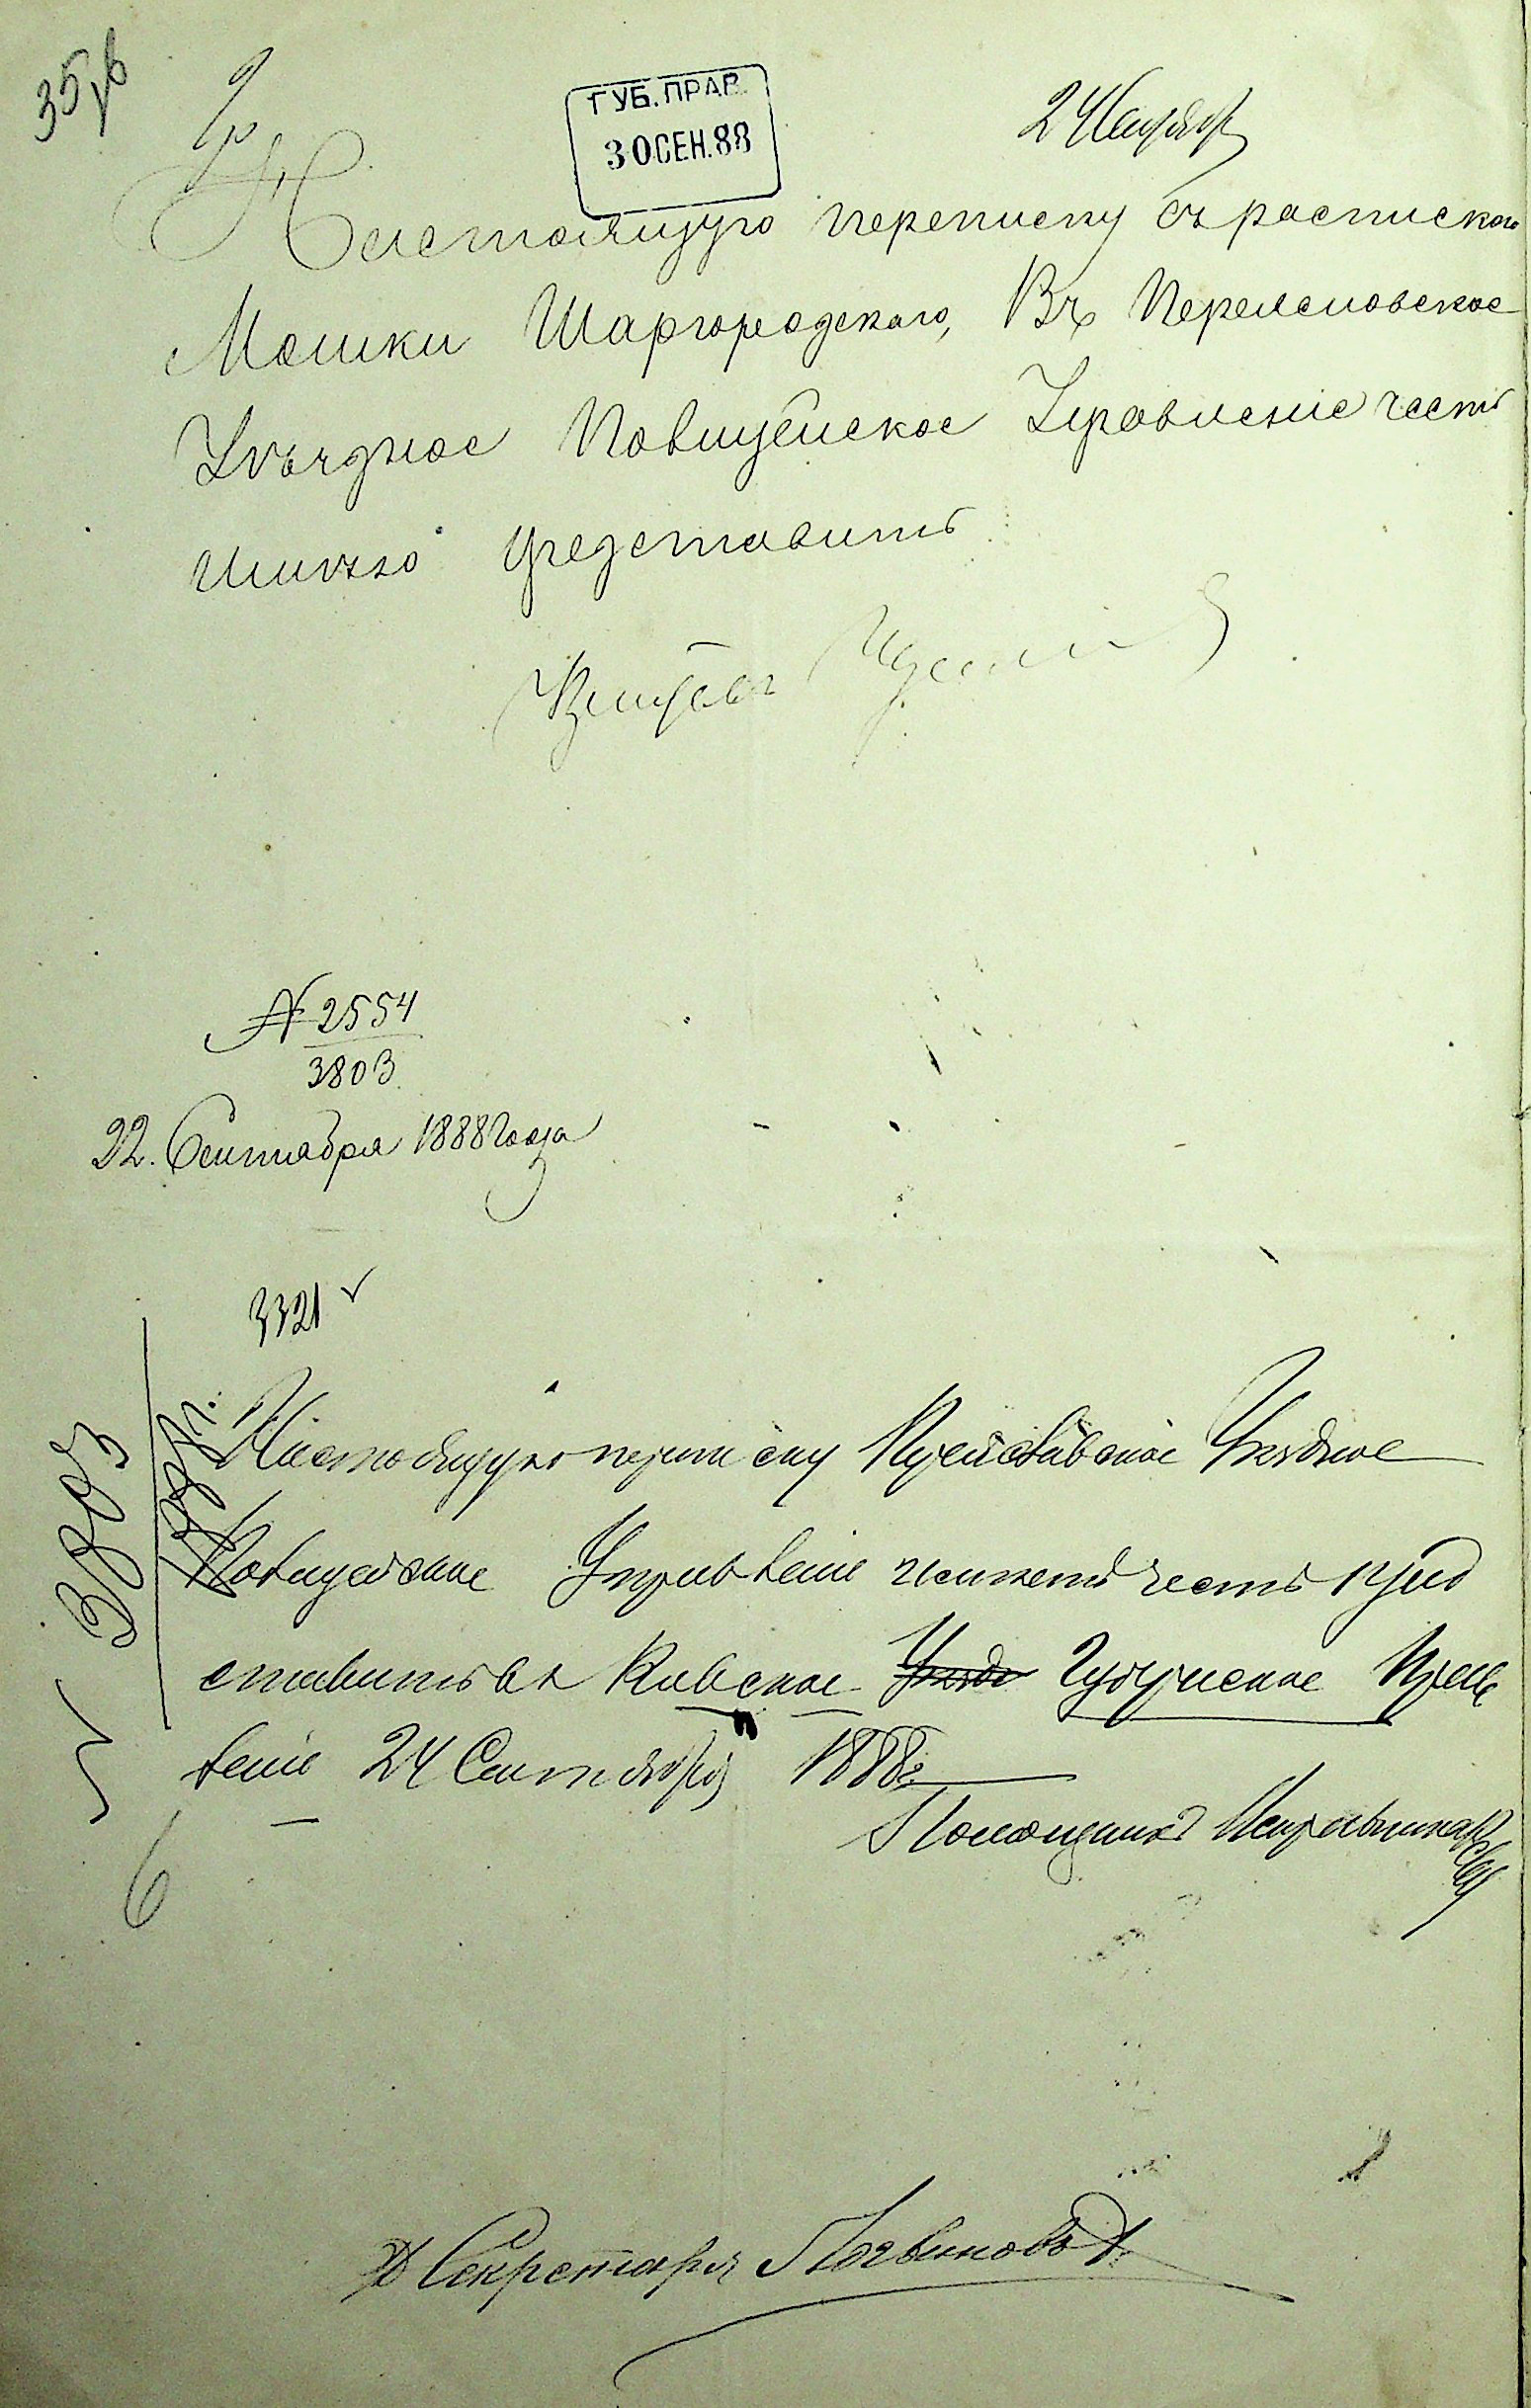 35
ГУБ. ПРАВ.
30 СЕН. 88
24 Сентябр
Настоящую переписку съ роспискою
Мошки Шаргородскаго, Въ Переяславское
Уѣздное Полицейское Управленіе честь
имѣю представить
№ 2554
3803
22. Сентября 1888 года
3321
Настоящую переписку Переяславское Уѣздное
Полицейское Управленіе имѣетъ честь пред
ставить въ Кіевское Губернское Прав
леніе 24 Сентября 1888 г.
Помощникъ Исправника
Секретаря Логвиновъ